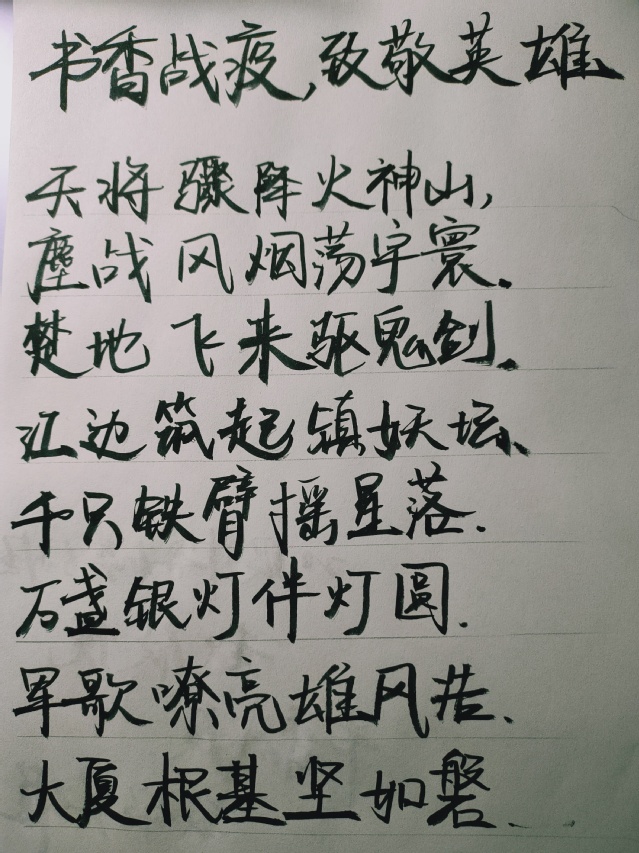 书香战疫,致敬英雄
天将骤降火神山,
鏖战风烟荡宇寰.
楚地飞来驱鬼剑.
江边筑起镇妖坛、
千只铁臂摇星落.
万盏银灯伴灯圆.
军歌嘹亮雄风起、
大厦根基坚如磐.